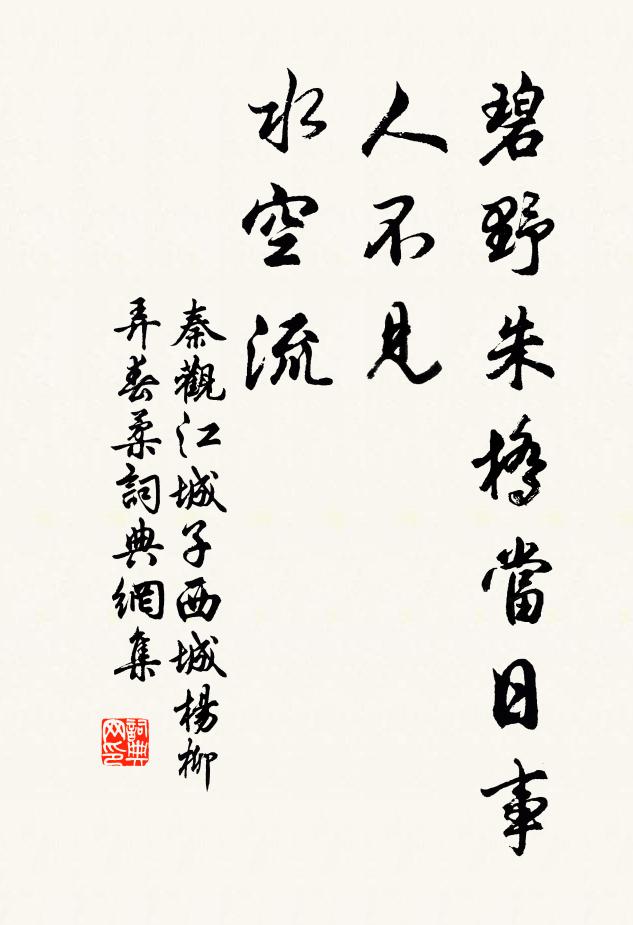 碧野朱橋當日事
人不見
水空流
秦觀江城子西城楊柳
弄春柔詞典網集
詞典网印